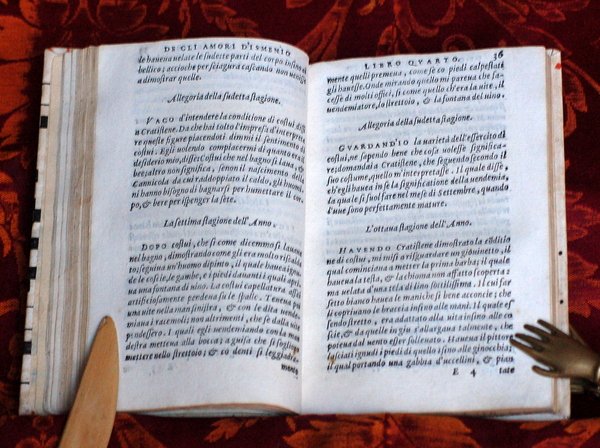 DE GLI AMORI D'ISMENIO
de haueua velate le sudette parti del corpo infino al
bellico; accioche per sciagura cascando non venisse
a dimostrar quelle.
Allegoria della sudetta stagione.
VAGO d'intendere la conditione di costui dissi
a Cratistene. Da che hai tolto l'impresa d'interpreta
re queste figure piacendoti dimmi il sentimento di
costui. Egli volendo compiacermi di quanto era il
desiderio mio, disse: Costui che nel bagno si laua, &
bee; altro non significa, senon il nascimento della
Cannicola da cui raddoppiato il caldo, gli huomi-
ni hanno bisogno di bagnarsi per humettare il cor-
po, & bere per ispenger la sete.
La settima stagione dell'Anno.
DOPO costui, che si come dicemmo si lauaua
nel bagno, dimostrando come gli era molto risolu-
to; seguiua vn'huomo dipinto, il qual haueua ignu-
de le coscie, le gambe, e i piedi dauanti a quali apri
ua vna fontana di vino. La costui capellatura assai
artificiosamente pendeua su le spalle. Teneua poi
vna vite nella man sinistra, & con le dita vendem-
miaua i racemoli non altrimenti, che se dalla vite
pendessero. I quali egli vendemiando con la man
destra metteua alla bocca; a guisa che si sogliono
mettere nello strettoio; & co denti si leggiadra-
mente
LIBRO QVARTO. 36
mente quelli premeua, come se co piedi calpestati
gli hauesse. Onde mirando quello mi pareua che fa-
cesse di molti offici, si come quello ch'era la vite, il
vendemiatore, lo strettoio, & la fontana del vino.
Allegoria della sudetta stagione.
GVARDAND'IO la varietà dell'essercito di
costui, ne sapendo bene che cosa volesse significa-
re; domandai a Cratistene, che seguendo secondo il
suo costume, quello m'interpretasse. Il quale disse,
ch'egli haueua in se la significatione della vendemia,
la quale si suol fare nel mese di Settembre, quando
l'vue sono perfettamente mature.
L'ottaua stagione dell'Anno.
HAVENDO Cratistene dimostrato la cōditio
ne di costui, mi misi a risguardare vn giouinetto, il
qual cominciaua a metter la prima barba; il quale
haueua la testa, & la chioma non affatto scoperta:
ma velata d'vna tela di lino sottilissima. Il cui far
setto bianco haueua le maniche si bene acconcie; che
li copriuano le braccia infino alle mani. Il quale es
sendo stretto, era adattato alla vita infino alle co-
scie, & da quelle in giu s'allargaua talmente, che
poteua dal vento esser solleuato. Haueua il pittor
lasciati ignudi i piedi di quello; sino alle ginocchia;
il qual portando vna gabbia d'vccellini, & pian
E 4 tate